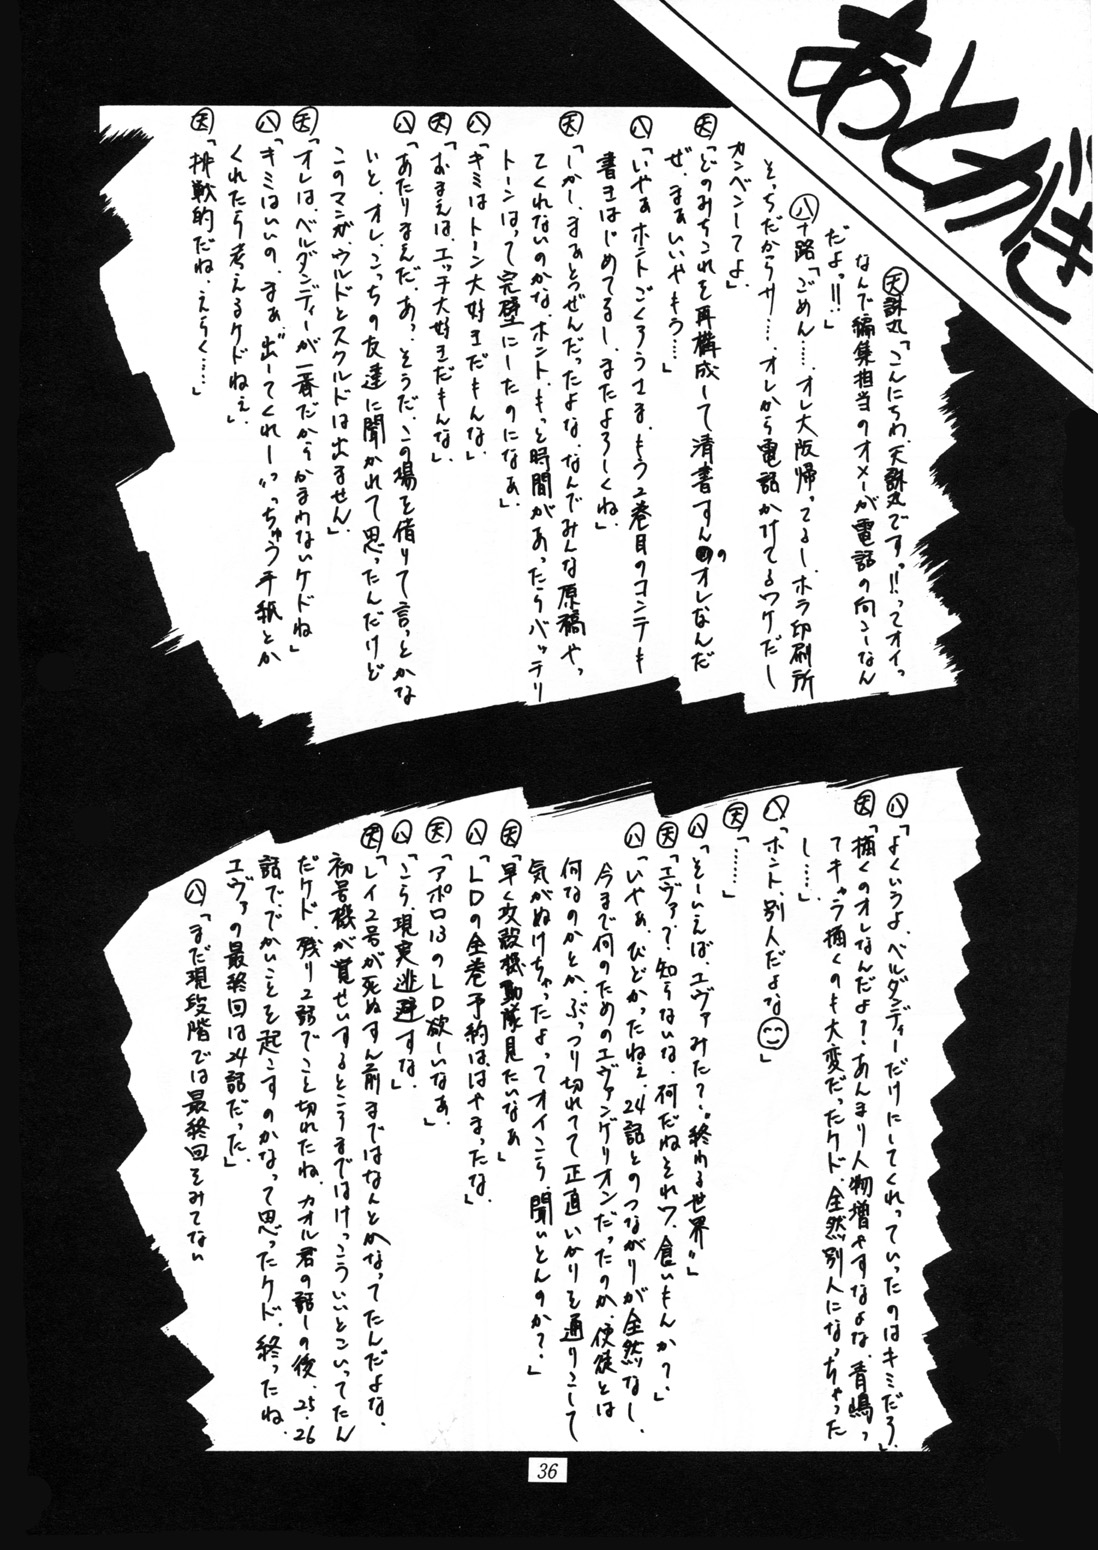 あとがき
天誅丸「こんにちわ、天誅丸ですっ!!ってオイっ
なんで編集担当のオメーが電話の向こーなん
だよっ!!」
八十路「ごめん……オレ大阪帰ってるし、ホラ印刷所
そっちだからサ……、オレから電話かけてるワケだし
カンベンしてよ」
天「どのみちこれを再構成して清書すんのオレなんだ
ぜ、まぁいいやもう……」
八「いやぁホントごくろうさま、もう2巻目のコンテも
書きはじめてるし、またよろしくね」
天「しかし、まぁとうぜんだったよな、なんでみんな原稿やっ
てくれないのかな、ホント、もっと時間があったらバッチリ
トーンはって完璧にしたのになぁ」
八「キミはトーン大好きだもんな」
天「おまえは、エッチ大好きだもんな」
八「あたりまえだ、あっ、そうだ、この場を借りて言っとかな
いと、オレ、こっちの友達に聞かれて思ったんだけど
このマンガ、ウルドとスクルドは出ません」
天「オレは、ベルダンディーが一番だからかまわないケドね」
八「キミはいいの、まぁ〝出ーてくれー〟っちゅう手紙とか
くれたら考えるケドねぇ」
天「挑戦的だね、えらく……」
八「よくいうよ、ベルダンディーだけにしてくれっていったのはキミだろ」
天「描くのオレなんだよ?あんまり人物増やすなよな、青嶋っ
てキャラ描くのも大変だったケド、全然別人になっちゃった
し……」
八「ホント、別人だよな」
天「……」
八「そーいえば、エヴァみた?〝終わる世界〟」
天「エヴァ?知らないな、何だねそれワ、食いもんか?」
八「いやぁ、ひどかったねぇ、24話とのつながりが全然なし、
今まで何のためのエヴァンゲリオンだったのか、使徒とは
何なのかとか、ぶっつり切れてて正直いかりを通りこして
気がぬけちゃったよってオイこら、聞いとんのか?」
天「早く攻殻機動隊見たいなぁ」
八「LDの全巻予約は、はやまったな」
天「アポロ13のLD欲しいなぁ」
八「こら、現実逃避すな」
天「レイ2号が死ぬすん前まではなんとかなってたんだよな、
初号機が覚せいするところまではけっこういいとこいってたん
だケド、残り2話でこと切れたね、カオル君の話しの後、25、26
話で、でかいことを起こすのかなって思ったケド、終ったね、
エヴァの最終回は24話だった」
八「まだ現段階では最終回をみてない
36